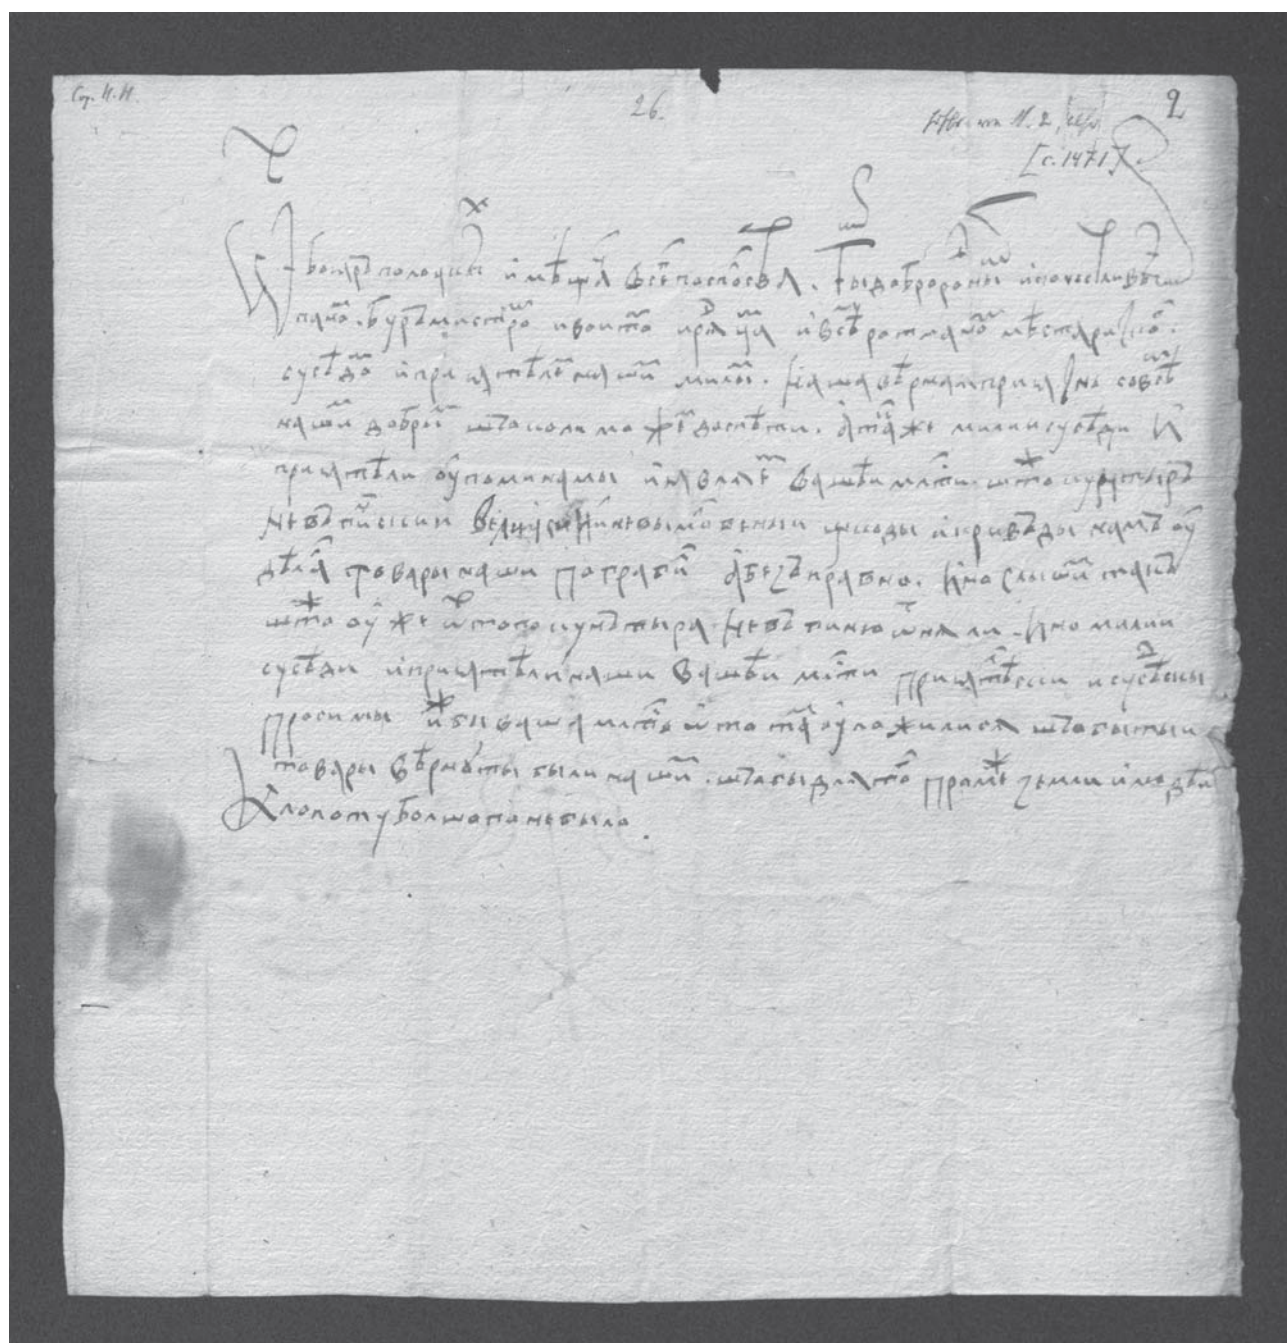 Cop. И. И.
26.
2
[c. 1471]
Ѿ бояръ полоцкихъ и мѣщанъ и всего поспольства. Выдобророженымъ и почестливымъ
паномъ. буръмистромъ и воитомъ и радцамъ и всѣмъ ротманомъ мѣста ризского.
сусѣдомъ и приятелемъ нашимъ милымъ. наша вѣрная приязнь со всѣмъ
нашимъ добрымъ што коли можемъ доспѣти. а такъ же милии сусѣди и
приятѣли оупоминаемы и являемъ вашѣи милости. што кунътыръ
невъпинскии великии и невымовеныи шкоды и кривъды намъ оу
дѣлалъ товары наши пограбилъ а безъправно. ино слышимъ такъ
што оуже ѿ того кунътыра невъпиню ѿняли. ино милии
сусѣди и приятѣли наши вашѣи милости приятельски и сусѣдски
просимы ижъ бы ваша милость ѿ то такъ оуложилися штобы тыи
товары вѣрнуты были нашимъ. штобы для того промежъ земли и людѣи
клопоту болшого не было.